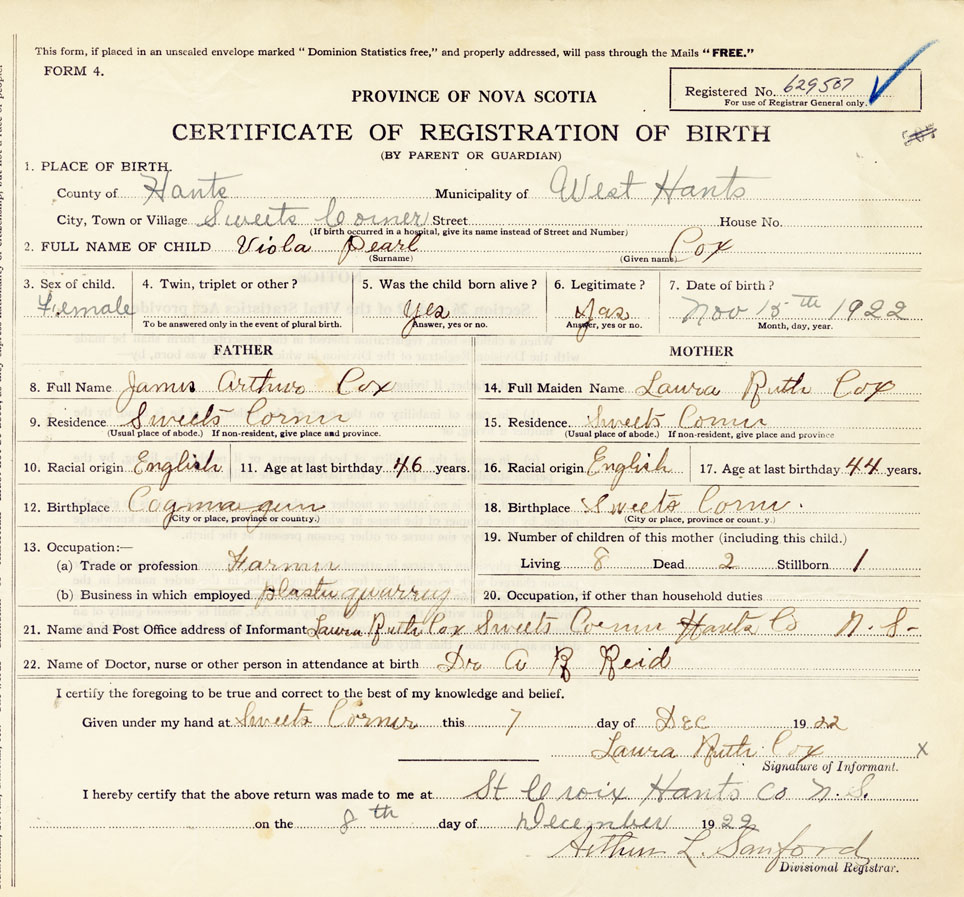 This form, if placed in an unsealed envelope marked "Dominion Statistics free," and properly addressed, will pass through the Mails "FREE."
FORM 4.
Registered No. 629507
For use of Registrar General only.
PROVINCE OF NOVA SCOTIA
CERTIFICATE OF REGISTRATION OF BIRTH
(BY PARENT OR GUARDIAN)
1. PLACE OF BIRTH.
County of Hants Municipality of West Hants
City, Town or Village Sweets Corner Street House No.
(If birth occurred in a hospital, give its name instead of Street and Number)
2. FULL NAME OF CHILD Viola Pearl Cox
(Surname) (Given name)
3. Sex of child. 4. Twin, triplet or other? 5. Was the child born alive? 6. Legitimate? 7. Date of birth?
Female yes yas Nov 15th 1922
To be answered only in the event of plural birth. Answer, yes or no. Answer, yes or no. Month, day, year.
FATHER MOTHER
8. Full Name James Arthur Cox 14. Full Maiden Name Laura Ruth Cox
9. Residence Sweets Corner 15. Residence. Sweets Corner
(Usual place of abode.) If non-resident, give place and province. (Usual place of abode.) If non-resident, give place and province
10. Racial origin English 11. Age at last birthday 46 years. 16. Racial origin English 17. Age at last birthday 44 years.
12. Birthplace Cogmagun 18. Birthplace Sweets Corner.
(City or place, province or country.) (City or place, province or country.)
13. Occupation:— 19. Number of children of this mother (including this child.)
(a) Trade or profession Farmer Living 8 Dead 2 Stillborn 1
(b) Business in which employed plaster quarrey 20. Occupation, if other than household duties
21. Name and Post Office address of Informant Laura Ruth Cox Sweets Corner Hants Co N. S.
22. Name of Doctor, nurse or other person in attendance at birth Dr. A R Reid
I certify the foregoing to be true and correct to the best of my knowledge and belief.
Given under my hand at Sweets Corner this 7 day of Dec 1922
Laura Ruth Cox X
Signature of Informant.
I hereby certify that the above return was made to me at St Croix Hants Co N. S.
on the 8th day of December 1922
Arthur L. Sanford
Divisional Registrar.